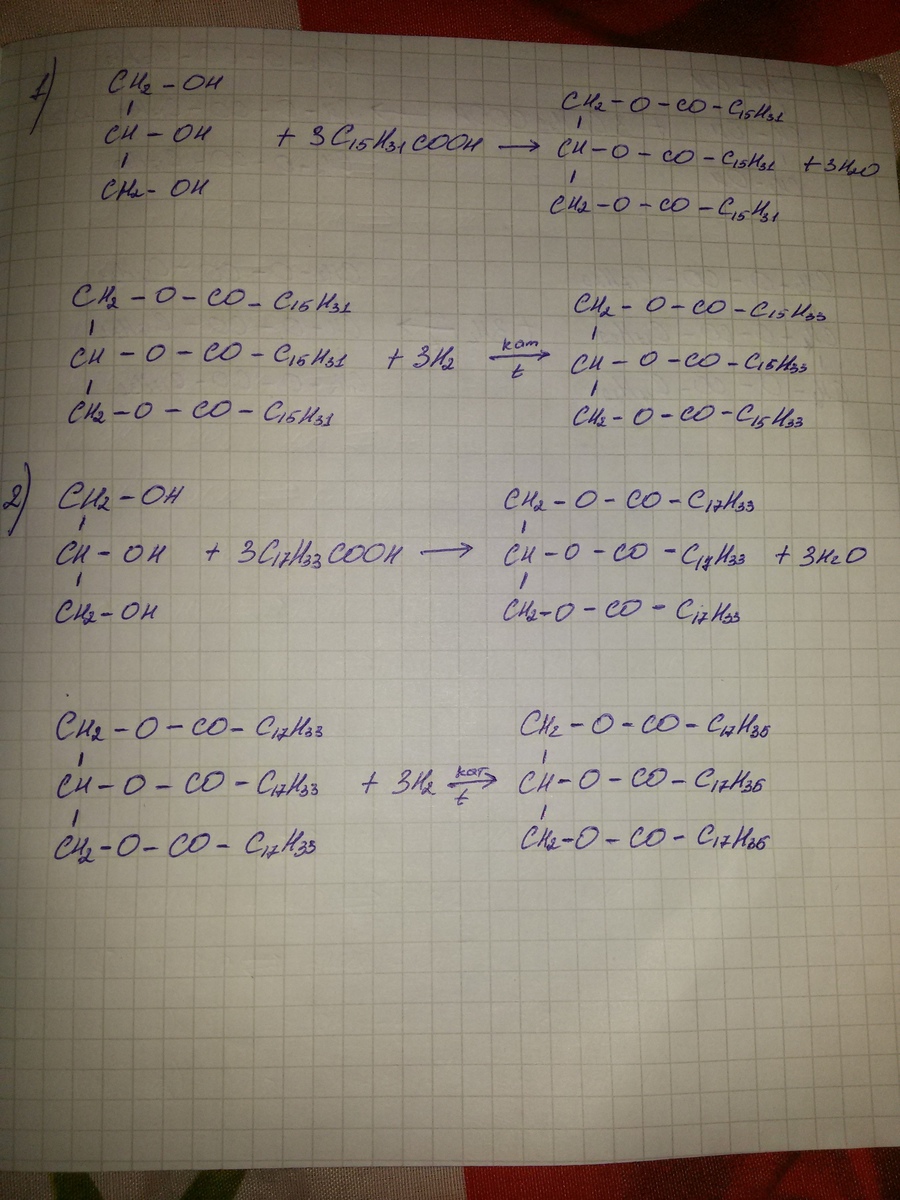 1)
CH₂ – OH CH₂ – O – CO – C₁₅H₃₁
CH – OH + 3C₁₅H₃₁COOH → CH – O – CO – C₁₅H₃₁ + 3H₂O
CH₂ – OH CH₂ – O – CO – C₁₅H₃₁
CH₂ – O – CO – C₁₅H₃₁ CH₂ – O – CO – C₁₅H₃₃
CH – O – CO – C₁₅H₃₁ + 3H₂ кат t → CH – O – CO – C₁₅H₃₃
CH₂ – O – CO – C₁₅H₃₁ CH₂ – O – CO – C₁₅H₃₃
2)
CH₂ – OH CH₂ – O – CO – C₁₇H₃₃
CH – OH + 3C₁₇H₃₃COOH → CH – O – CO – C₁₇H₃₃ + 3H₂O
CH₂ – OH CH₂ – O – CO – C₁₇H₃₃
CH₂ – O – CO – C₁₇H₃₃ CH₂ – O – CO – C₁₇H₃₅
CH – O – CO – C₁₇H₃₃ + 3H₂ кат t → CH – O – CO – C₁₇H₃₅
CH₂ – O – CO – C₁₇H₃₃ CH₂ – O – CO – C₁₇H₃₅